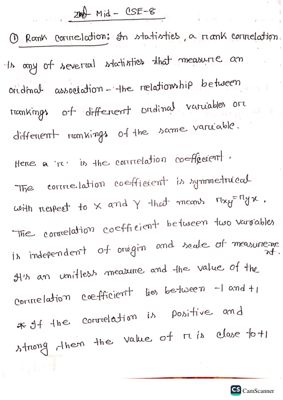 2nd Mid - CSE-8
① Rank correlation: In statistics, a rank correlation
is any of several statistics that measure an
ordinal association - the relationship between
rankings of different ordinal variables or
different rankings of the same variable.
Here a 'r' is the correlation coefficient.
The correlation coefficient is symmetrical
with respect to X and Y that means rxy = ryx.
The correlation coefficient between two variables
is independent of origin and scale of measurement.
It's an unitless measure and the value of the
correlation coefficient lies between -1 and +1
* If the correlation is positive and
strong, then the value of r is close to +1
CS CamScanner